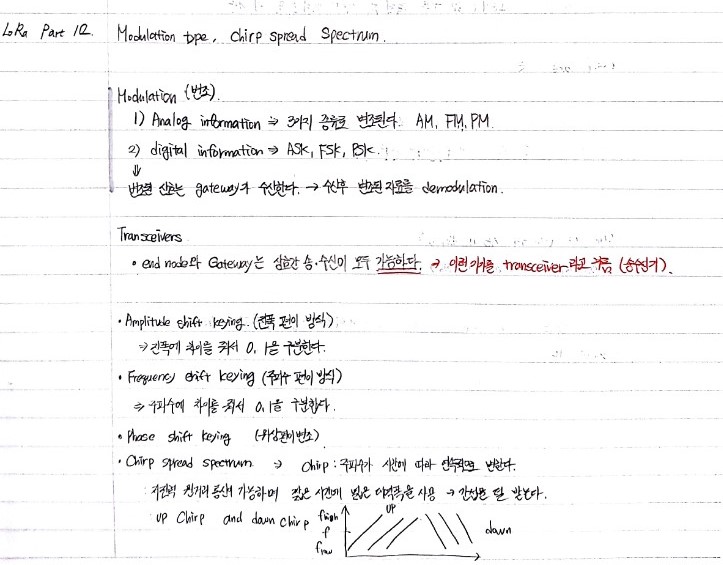 LoRa Part 12. Modulation type, Chirp spread Spectrum.
Modulation (변조).
1) Analog information ⇒ 3가지 종류로 변조된다. AM, FM, PM.
2) digital information ⇒ ASK, FSK, PSK.
⇓
변조된 신호는 gateway가 수신한다. → 수신후 변조된 자료를 demodulation.
Transceivers
• end node와 Gateway는 상호간 송·수신이 모두 가능하다. → 이런 기기를 transceiver라고 부름 (송수신기).
• Amplitude shift keying. (진폭 편이 방식)
⇒ 진폭에 차이를 줘서 0, 1을 구분한다.
• Frequency shift keying (주파수 편이 방식)
⇒ 주파수에 차이를 줘서 0,1을 구분한다.
• Phase shift keying (위상편이변조)
• Chirp spread spectrum ⇒ Chirp : 주파수가 시간에 따라 연속적으로 변한다.
저전력 원거리 통신이 가능하며 짧은 시간에 넓은 대역폭을 사용 → 간섭을 덜 받는다.
UP Chirp and down chirp fhigh UP
f down
flow